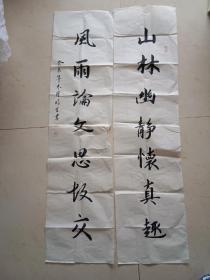 山林幽靜懷真趣
風雨論文思故交